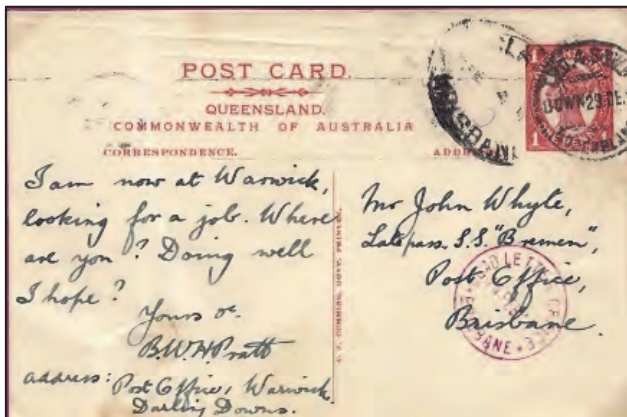 POST CARD.
QUEENSLAND.
COMMONWEALTH OF AUSTRALIA
CORRESPONDENCE.
I am now at Warwick,
looking for a job. Where
are you? Doing well
I hope?
Yours &c.
B.W.H. Pratt
address: Post Office, Warwick.
Darling Downs.
Mr John Whyte,
Late pass. S.S. "Bremen",
Post Office,
Brisbane.
1
1 1
BRISBANE
DOWN 29 DE
DEAD LETTER OFFICE
BRISBANE